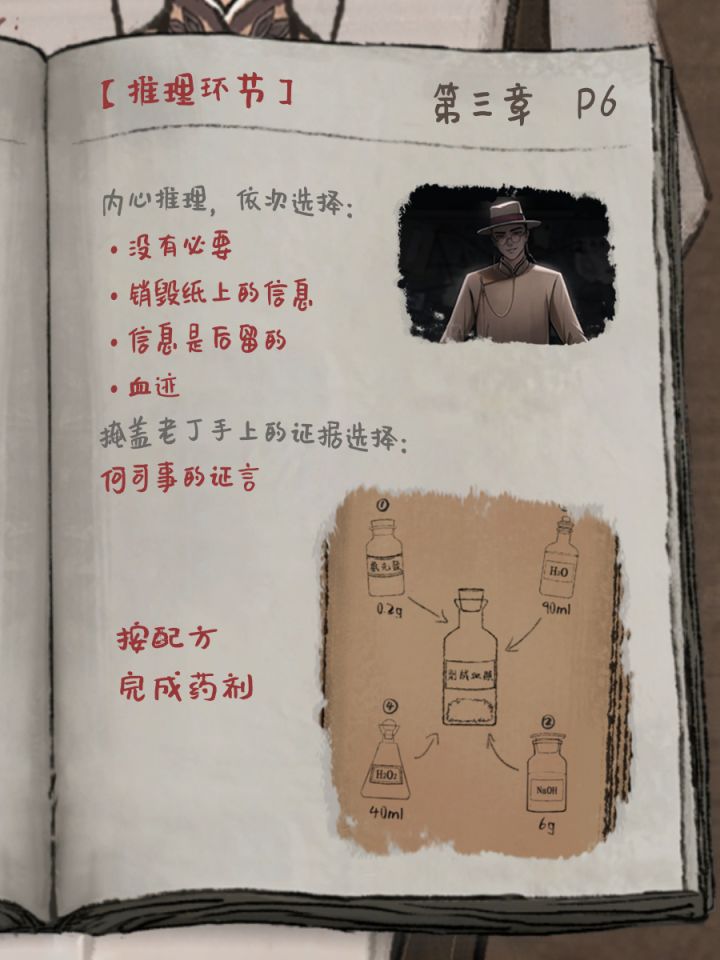 【推理环节】
第三章 P6
内心推理，依次选择：
•没有必要
•销毁纸上的信息
•信息是后留的
•血迹
掩盖老丁手上的证据选择：
何司事的证言
①
H₂O
0.2g
90ml
按配方
完成药剂
④
②
H₂O₂
NaOH
40ml
6g